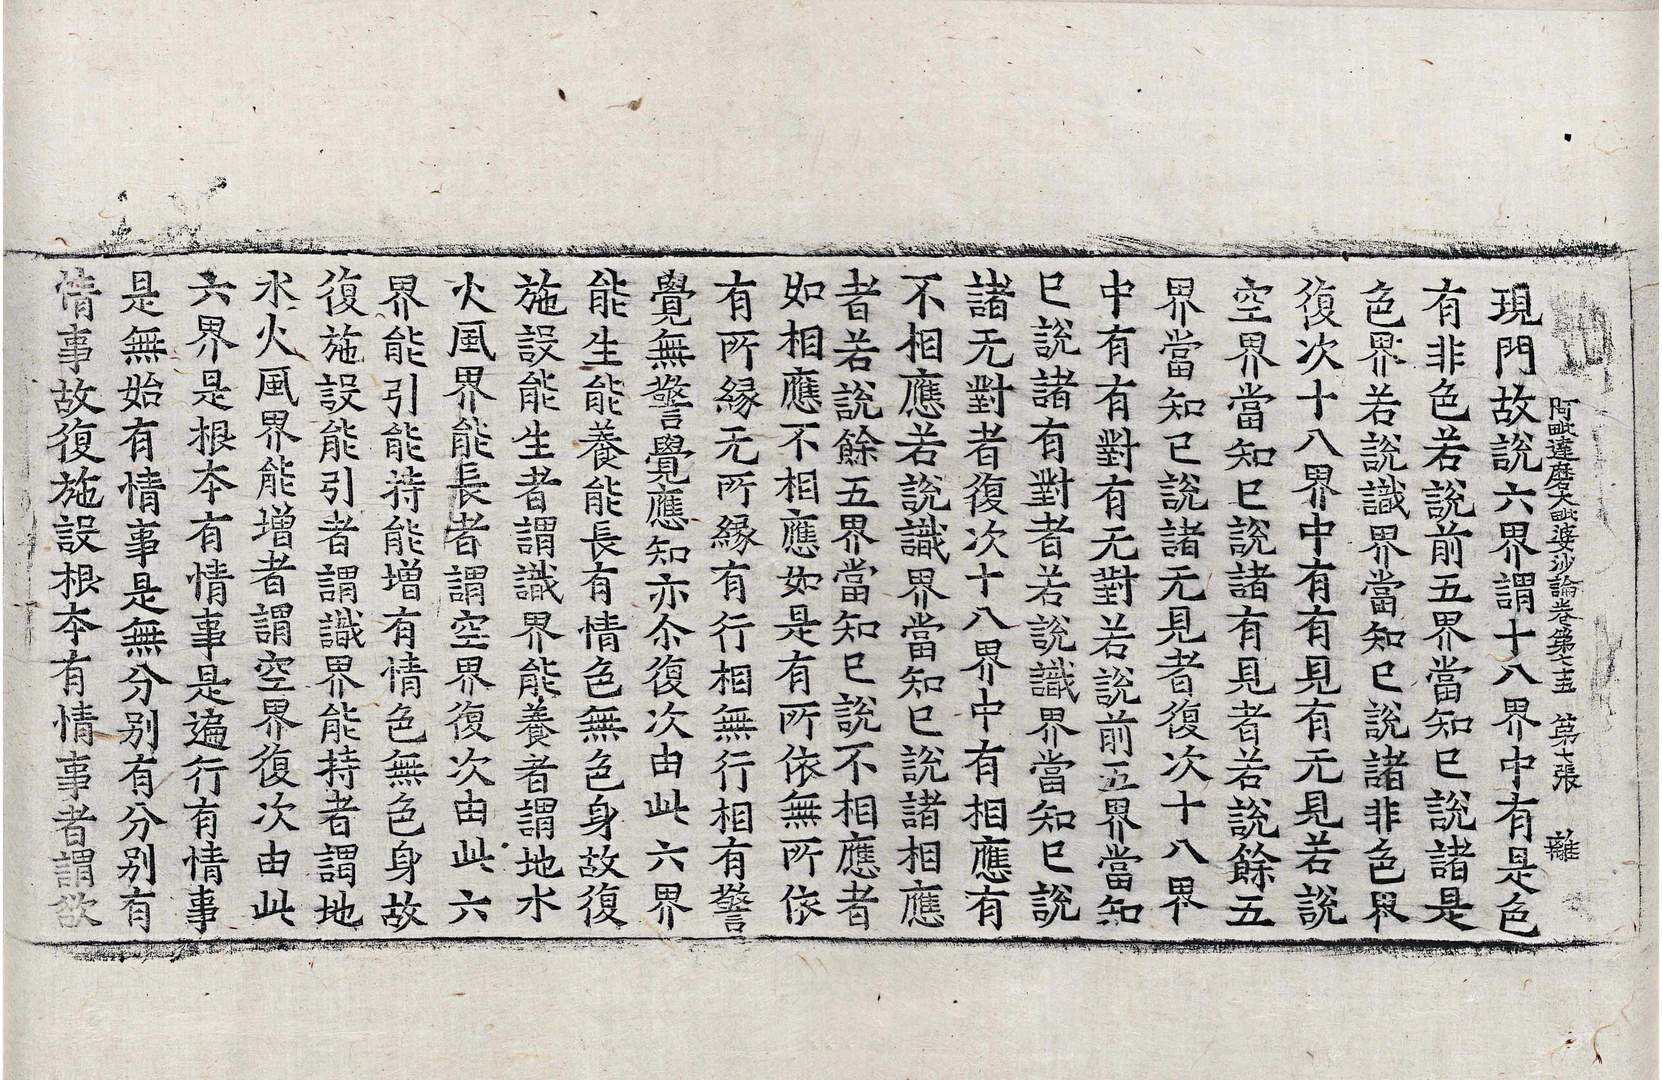 阿毗達磨大毗婆沙論卷第七十五　第七張　離
現門故說六界謂十八界中有是色
有非色若說前五界當知已說諸是
色界若說識界當知已說諸非色界
復次十八界中有有見有无見若說
空界當知已說諸有見者若說餘五
界當知已說諸无見者復次十八界
中有有對有无對若說前五界當知
已說諸有對者若說識界當知已說
諸无對者復次十八界中有相應有
不相應若說識界當知已說諸相應
者若說餘五界當知已說不相應者
如相應不相應如是有所依無所依
有所縁无所縁有行相無行相有警
覺無警覺應知亦尒復次由此六界
能生能養能長有情色無色身故復
施設能生者謂識界能養者謂地水
火風界能長者謂空界復次由此六
界能引能持能增有情色無色身故
復施設能引者謂識界能持者謂地
水火風界能增者謂空界復次由此
六界是根本有情事是遍行有情事
是無始有情事是無分別有分別有
情事故復施設根本有情事者謂欲